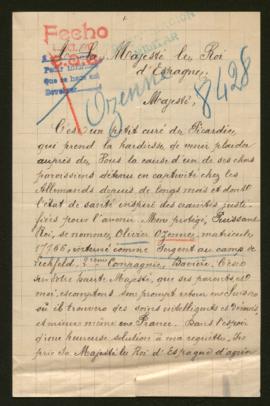 Fecho
A Sa Majesté le Roi
d'Espagne.
Ozenne
8428
Majesté,
C'est un petit curé de Picardie,
qui prend la hardiesse de venir plaider
auprès de Vous la cause d'un de ses chers
paroissiens détenu en captivité chez les
Allemands depuis de longs mois et dont
l'état de santé inspire des craintes justi-
fiées pour l'avenir. Mon protégé, Puissant
Roi, se nomme Olivier Ozenne, matricule
interné comme sergent au camp de
Lechfeld, Compagnie, Bavière. C'est
Votre haute Majesté, que ses parents et
moi, escomptons son prompt retour en Suisse
où il trouvera des soins intelligents et
et même même en France. Dans l'espoir
d'une heureuse solution à ma requête, Je
prie Sa Majesté le Roi d'Espagne d'agréer